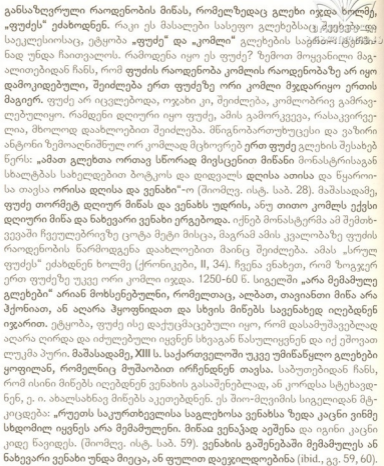 განსაზღვრული რაოდენობის მიწას, რომელზედაც გლეხი იჯდა ხოლმე,
„ფუძეს“ ეძახოდნენ. რაკი ეს მასალები სასეფო გლეხებსაც შეეხება და
საეკლესიოსაც, ეტყობა „ფუძე“ და „კომლი“ გლეხების საერთო
ნად უნდა ჩაითვალოს. რამოდენა იყო ეს ფუძე? ზემოთ მოყვანილი მაგ-
ალითებიდან ჩანს, რომ ფუძის რაოდენობა კომლის რაოდენობაზე არ იყო
დამოკიდებული, შეიძლება ერთ ფუძეზე ორი კომლი მჯდარიყო ერთის
მაგიერ. ფუძე არ იცვლებოდა, ოჯახი კი, შეიძლება, კომლობრივ გამრავ-
ლებულიყო. რამდენი დღიური იყო ფუძე, ამის გამორკვევა, რასაკვირვე-
ლია, მხოლოდ დაახლოებით შეიძლება. მწიგნობართუხუცესი და ვაზირი
ანტონი ზემოაღნიშნულ ორ კომლად მცხოვრებ ერთ ფუძე გლეხის შესახებ
წერს: „ამათ გლეხთა ორთავ სწორად მივსცენით მიწანი მონასტრისაგან
სხალტბას სახელდებით ბოტკოს და დიდვალს დღისა ათისა და წყაროი-
სა თავსა ორისა დღისა და ვენახი“-ო (შიომღვ. ისტ. საბ. 28). მაშასადამე,
ფუძე თორმეტ დღიურ მიწას და ვენახს უდრის, ანუ თითო კომლს ექვსი
დღიური მიწა და ნახევარი ვენახი ერგებოდა. იქნებ მონასტერმა ამ შემთხ-
ვევაში ჩვეულებრივზე ცოტა მეტი მისცა, მაგრამ ამის კვალობაზე ფუძის
რაოდენობის წარმოდგენა დაახლოებით მაინც შეიძლება. ამას „სრულ
ფუძეს“ ეძახდნენ ხოლმე (ქრონიკები, II, 34). ჩვენა ვნახეთ, რომ ზოგჯერ
ერთ ფუძეზე უკვე ორი კომლი იჯდა. 1250-60 წ. სიგელში „არა მემამულე
გლეხები“ არიან მოხსენებულნი, რომელთაც, ალბათ, თავიანთი მიწა არ
ჰქონიათ, ან აღარა ჰყოფნიდათ და სხვის მიწებს სავენახედ იღებდნენ
იჯარით. ეტყობა, ფუძე ისე დაქუცმაცებული იყო, რომ დასამუშავებლად
აღარა ღირდა და იძულებული იყვნენ სხვაგან წასულიყვნენ და იქ ეშოვათ
ლუკმა პური. მაშასადამე, XIII ს. საქართველოში უკვე უმიწაწყლო გლეხები
ყოფილან, რომელნიც მუშაობით ირჩენდნენ თავსა. საბუთებიდან ჩანს,
რომ ისინი მიწებს იღებდნენ ვენახის გასაშენებლად, ან კორდსა სტეხავდ-
ნენ, ე. ი. ახალსახნავ მიწებს აკეთებდნენ. ეს შიო-მღვიმის სიგელიდან მტ-
კიცდება: „რუეთს საკურთხევლისა საგლეხოსა ვენახსა ზედა კაცნი ვინმე
სხდომილ იყვნეს არა მემამულენი. მინამ ვენაჴად აეშენა და იგინი კაცნი
კიდე წავიდეს. (შიომღვ. ისტ. საბ. 59). ვენახის გაშენებაში მემამულეს ან
ნახევარი ვენახი უნდა მიეცა, ან ფულით დაეჯილდოებინა (ibid., გვ. 59, 60).